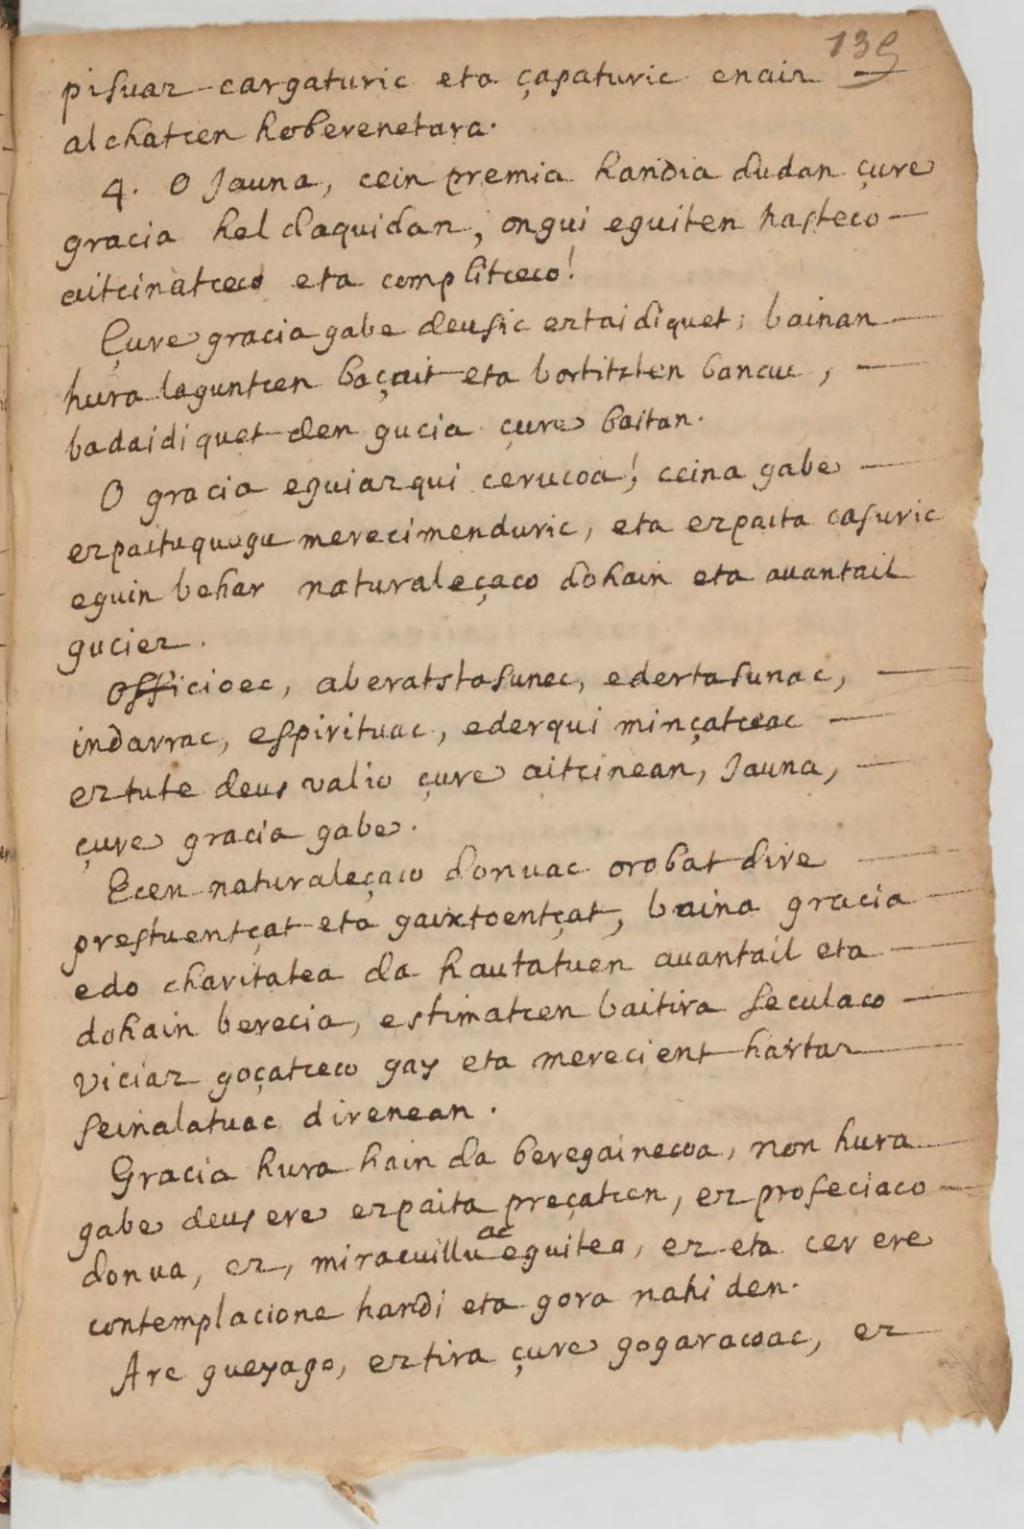 139
pisuaz cargaturic eta çapaturic enaiz
alchatcen hoberenetara.
4. O Jauna, cein premia handia dudan çure
gracia hel daquidan, ongui eguiten hasteco
aitcinatceco eta complitceco!
Çure gracia gabe deusic eztaidiquet; bainan
hura laguntcen baçait eta bortitzten banau,
badaidiquet den gucia çure baitan.
O gracia eguiazqui cerucoa! ceina gabe
ezpaituquegu merecimenduric, eta ezpaita casuric
eguin behar naturaleçaco dohain eta auantail
guciez.
Officioec, aberatstasunec, edertasunac,
indarrac, espirituac, ederqui minçatceac
eztute deus valio çure aitcinean, Jauna,
çure gracia gabe.
Ecen naturaleçaco donuac orobat dire
prestuentçat eta gaixtoentçat, baina gracia
edo charitatea da hautatuen auantail eta
dohain berecia, estimatcen baitira seculaco
viciaz goçatceco gay eta merecient hartaz
seinalatuac direnean.
Gracia hura hain da beregainecoa, non hura
gabe deus ere ezpaita preçatcen, ez profeciaco
donua, ez, miracuilluac eguitea, ez eta cer ere
contemplacione handi eta gora nahi den.
Are gueyago, eztira çure gogaracoac, ez